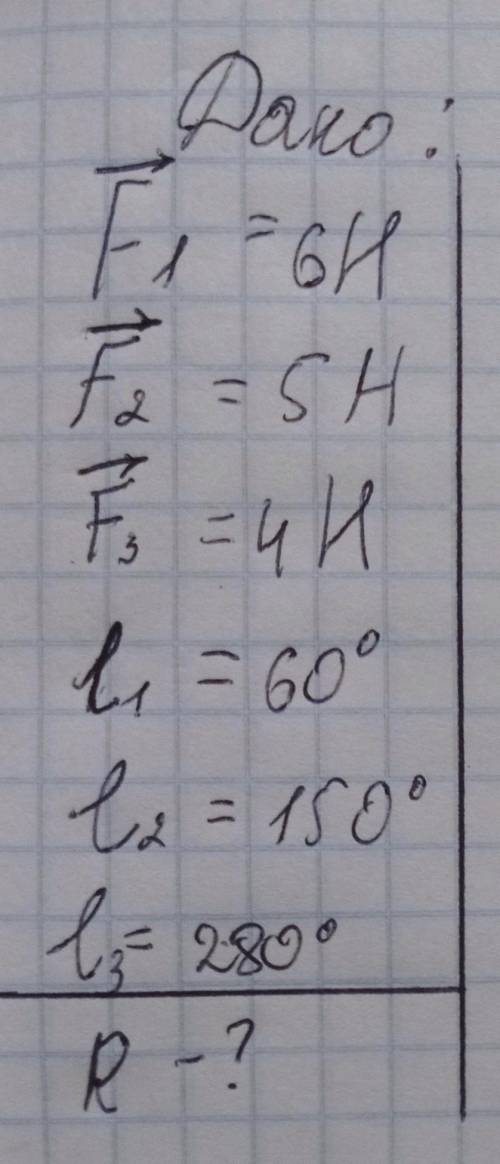 Дано:
F⃗1 = 6Н
F⃗2 = 5Н
F⃗3 = 4Н
l1 = 60°
l2 = 150°
l3 = 280°
R - ?